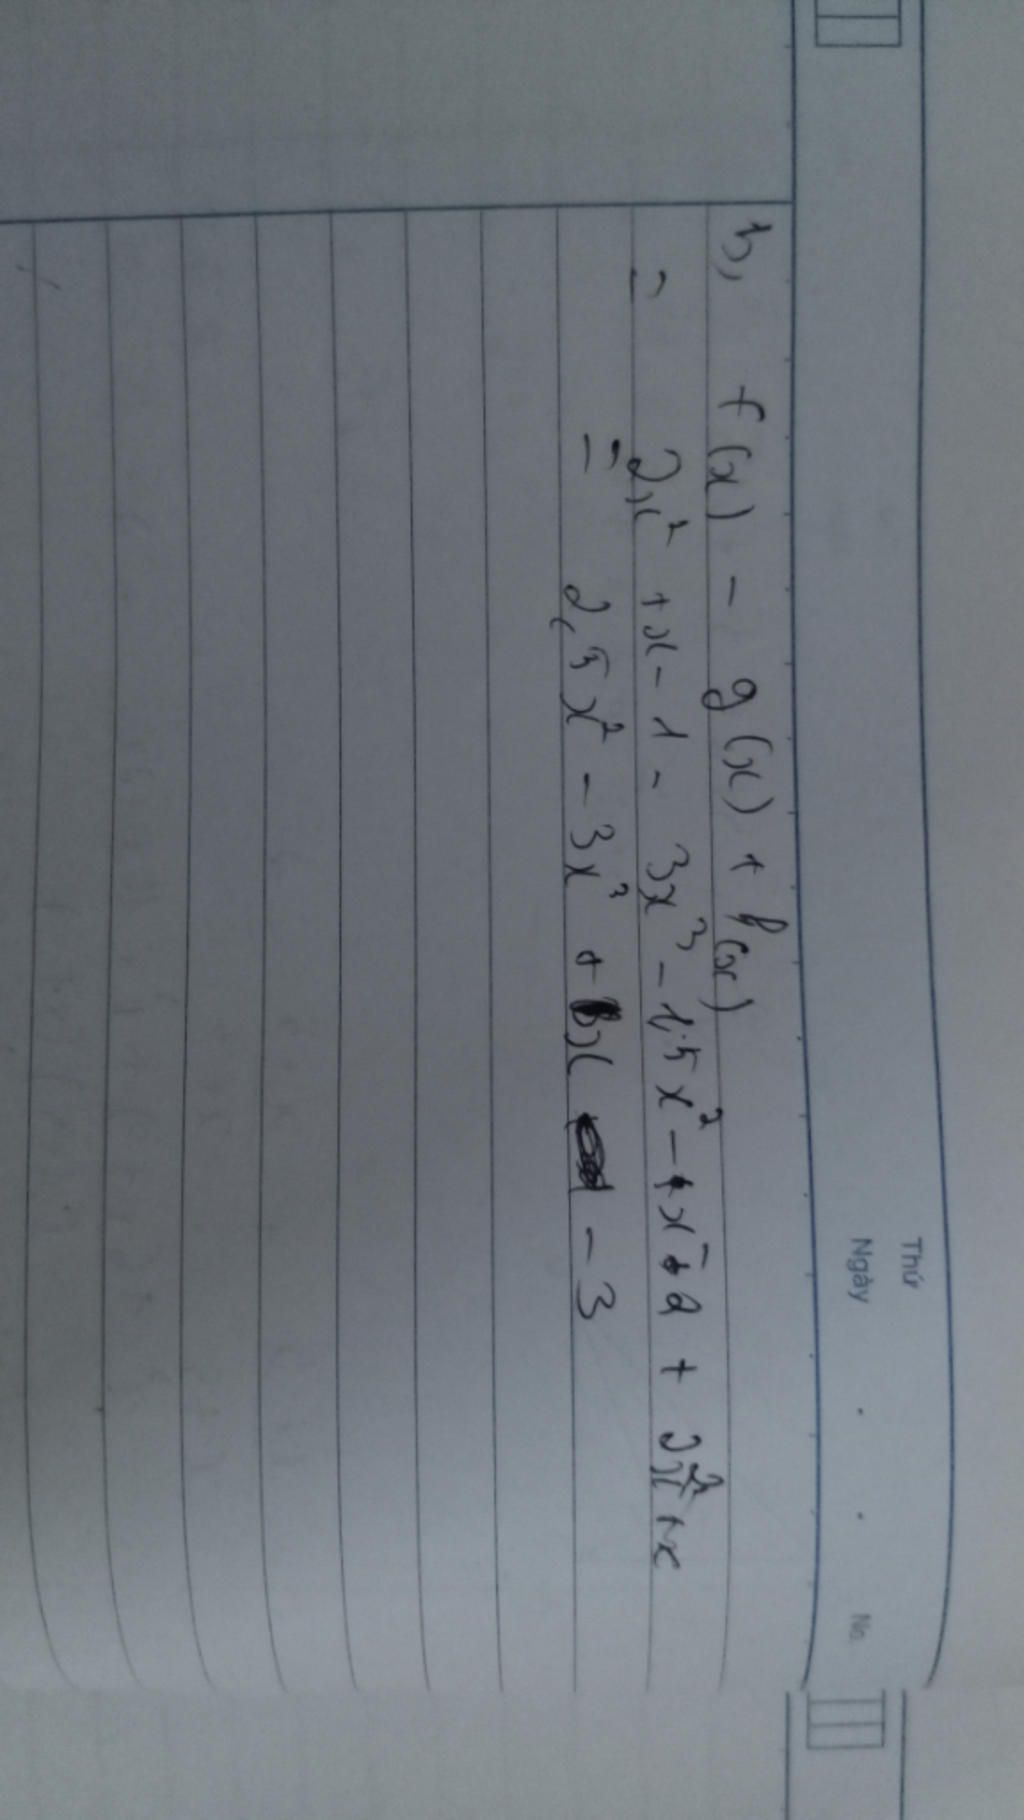 Thứ
Ngày . . No.
b, f(x) - g(x) + h(x)
= 2x² + x - 1 - 3x³ - 1,5x² - x - 2 + 2x² + x
= 2,5x² - 3x³ + x - 3